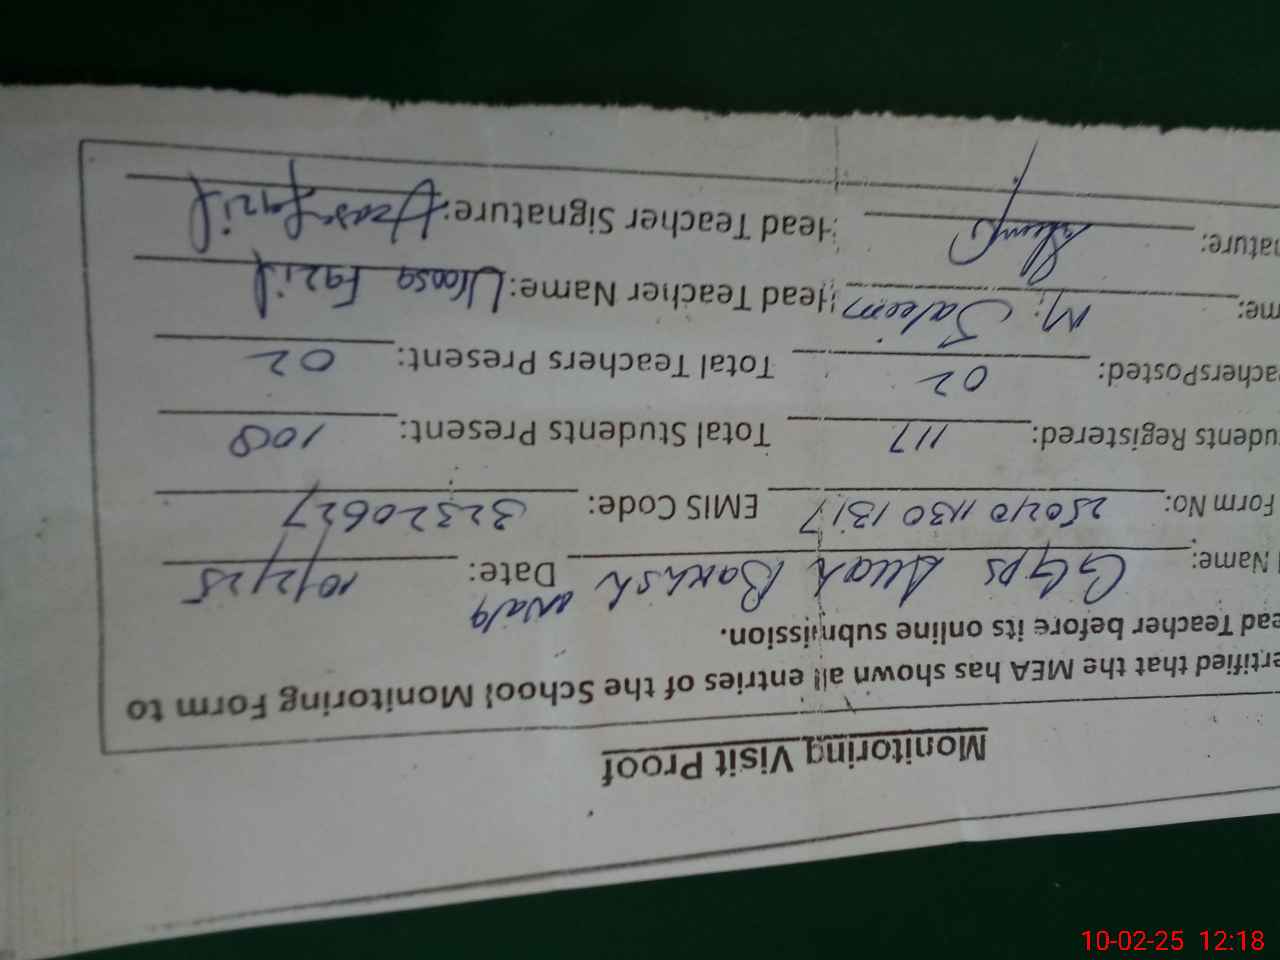 Monitoring Visit Proof
ertified that the MEA has shown all entries of the School Monitoring Form to
ead Teacher before its online submission.
Name: GGPS Allah Bakhsh Date: 10/2/25
Form No: EMIS Code: 32320627
udents Registered: 117 Total Students Present: 108
achersPosted: 02 Total Teachers Present: 02
me: M. Saleem Head Teacher Name: Uroosa Fazil
ature: Head Teacher Signature:
10-02-25 12:18